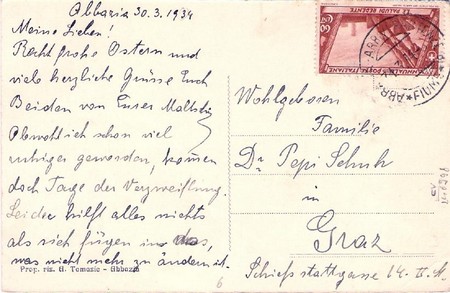 Abbazia 30.3.1934
Meine Lieben!
Recht frohe Ostern und
viele herzliche Grüsse Euch
Beiden von Eurer
Obwohl ich schon viel
ruhiger geworden, kommen
doch Tage der Verzweiflung.
Leider hilft alles nichts
als sich fügen in das,
was nicht mehr zu ändern ist.
Prop. ris. G. Tomasic - Abbazia
LE PALUDI REDENTE
POSTE ITALIANE
FIUME
Wohlgeboren
Familie
Dr Pepi Schuh
in
Graz
Schiesstattgasse